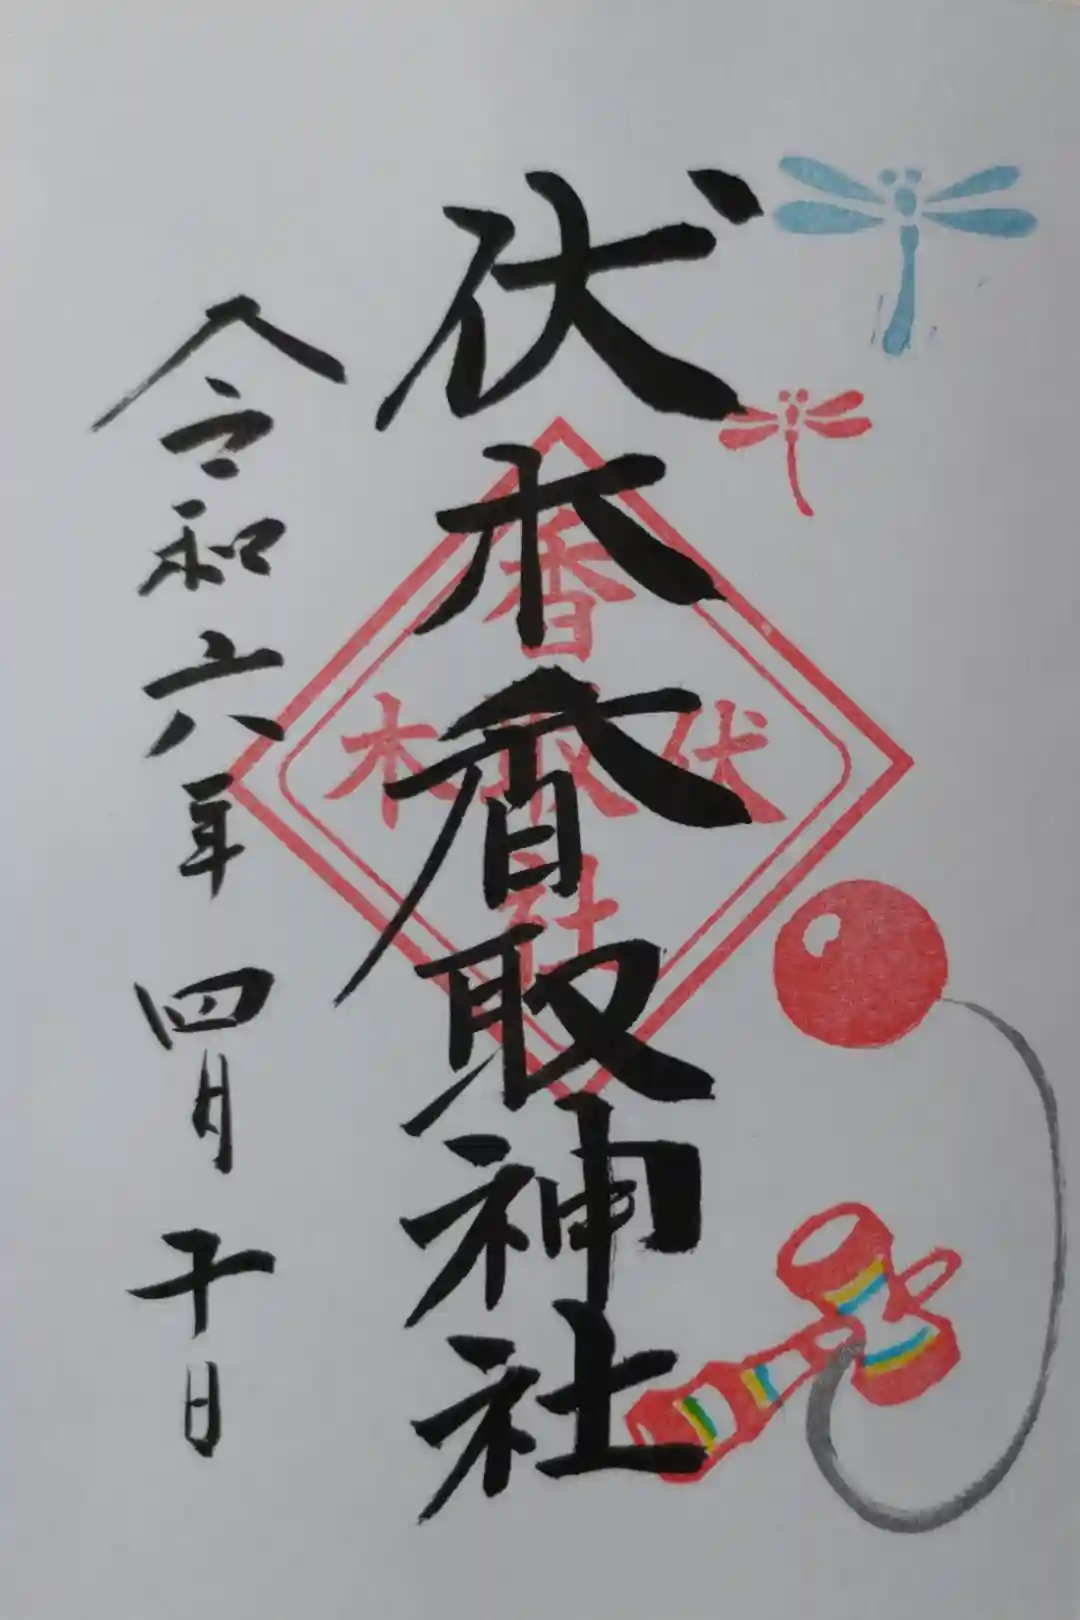 伏木香取神社
令和六年 四月 十日
香
伏取木
社